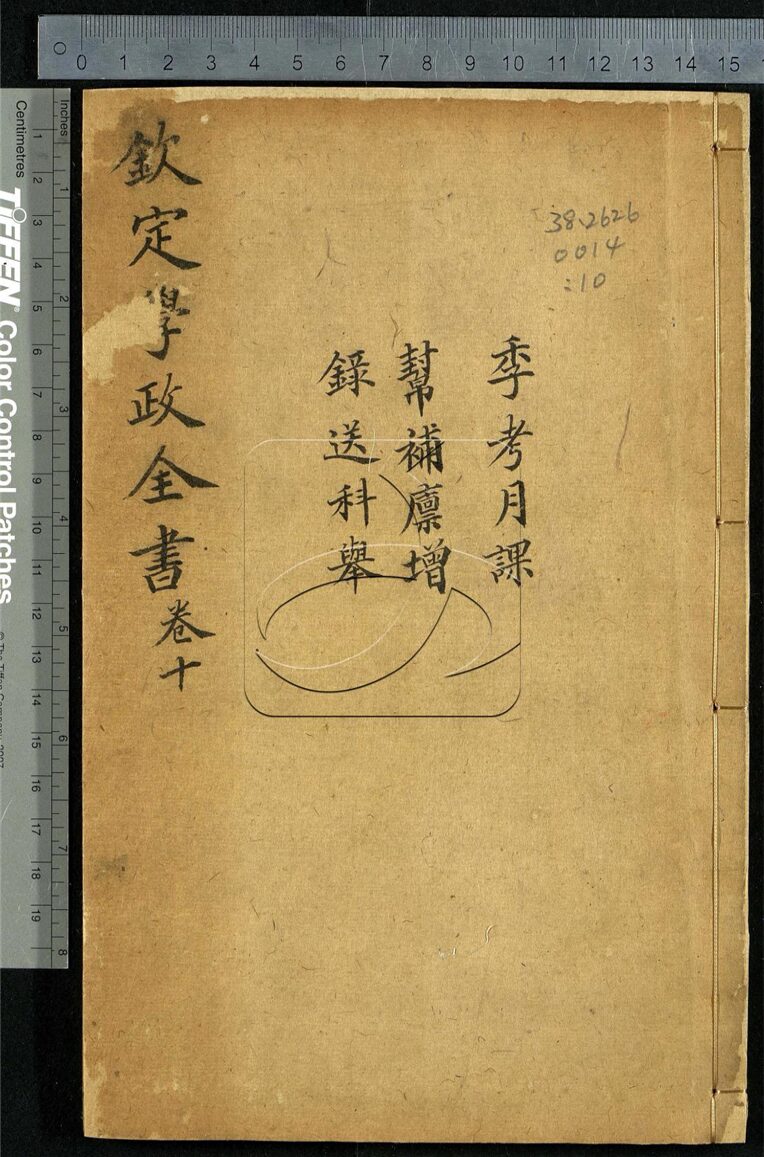 欽定學政全書卷十
季考月課
幫補廩增
錄送科舉
38.2626
0014
:10
0 1 2 3 4 5 6 7 8 9 10 11 12 13 14 15
Inches
Centimetres
1 2 3 4 5 6 7 8 9 10 11 12 13 14 15 16 17 18 19
1 2 3 4 5 6 7 8
TIFFEN® Color Control Patches